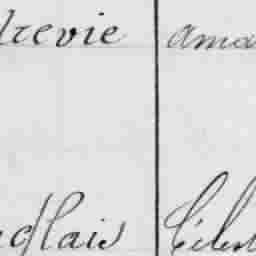 drevie ama
nglais Célest